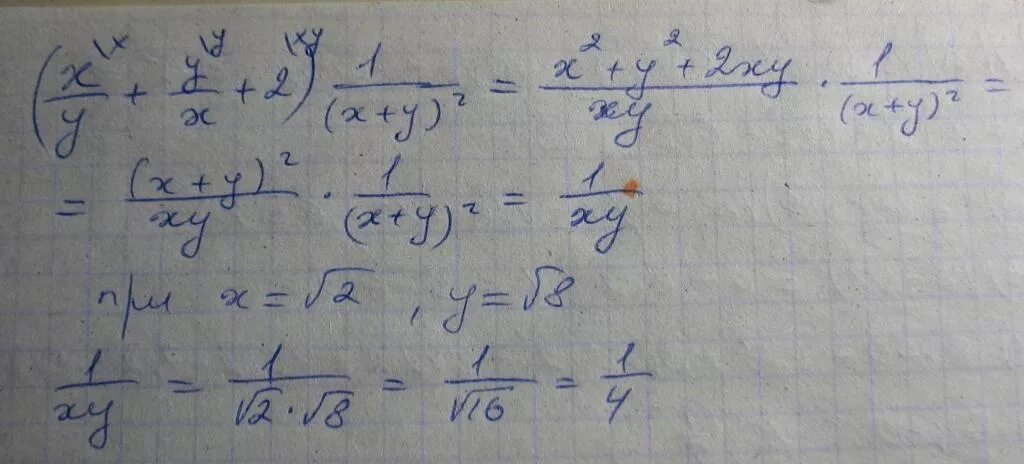 (x/y \x + y/x \y + 2 \xy) 1/(x+y)² = x²+y²+2xy/xy · 1/(x+y)² =
= (x+y)²/xy · 1/(x+y)² = 1/xy
при x=√2 , y=√8
1/xy = 1/√2·√8 = 1/√16 = 1/4